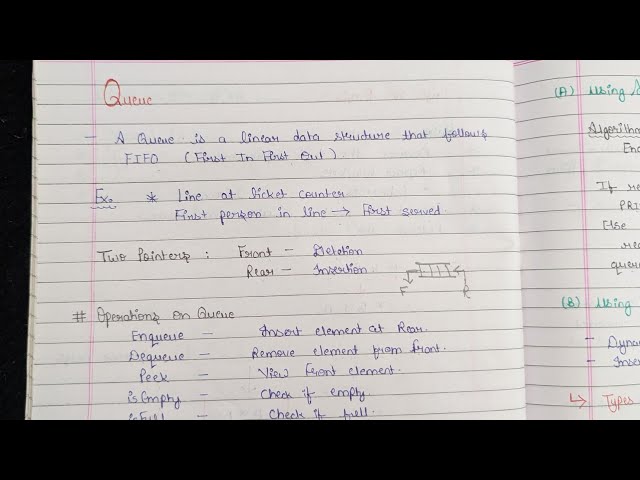 Queue
- A Queue is a linear data structure that follows
FIFO (First In First Out).
Ex. * Line at ticket counter
First person in line → First served
Two Pointers : Front - Deletion
Rear - Insertion
F R
# Operations on Queue
Enqueue - Insert element at Rear.
Dequeue - Remove element from front.
Peek - View front element.
isEmpty - Check if empty.
isFull - Check if full.
(A) Using
Algorith
En
If re
PRI
Else
rea
que
(B) Using
- Dyna
- Inser
↳ Types